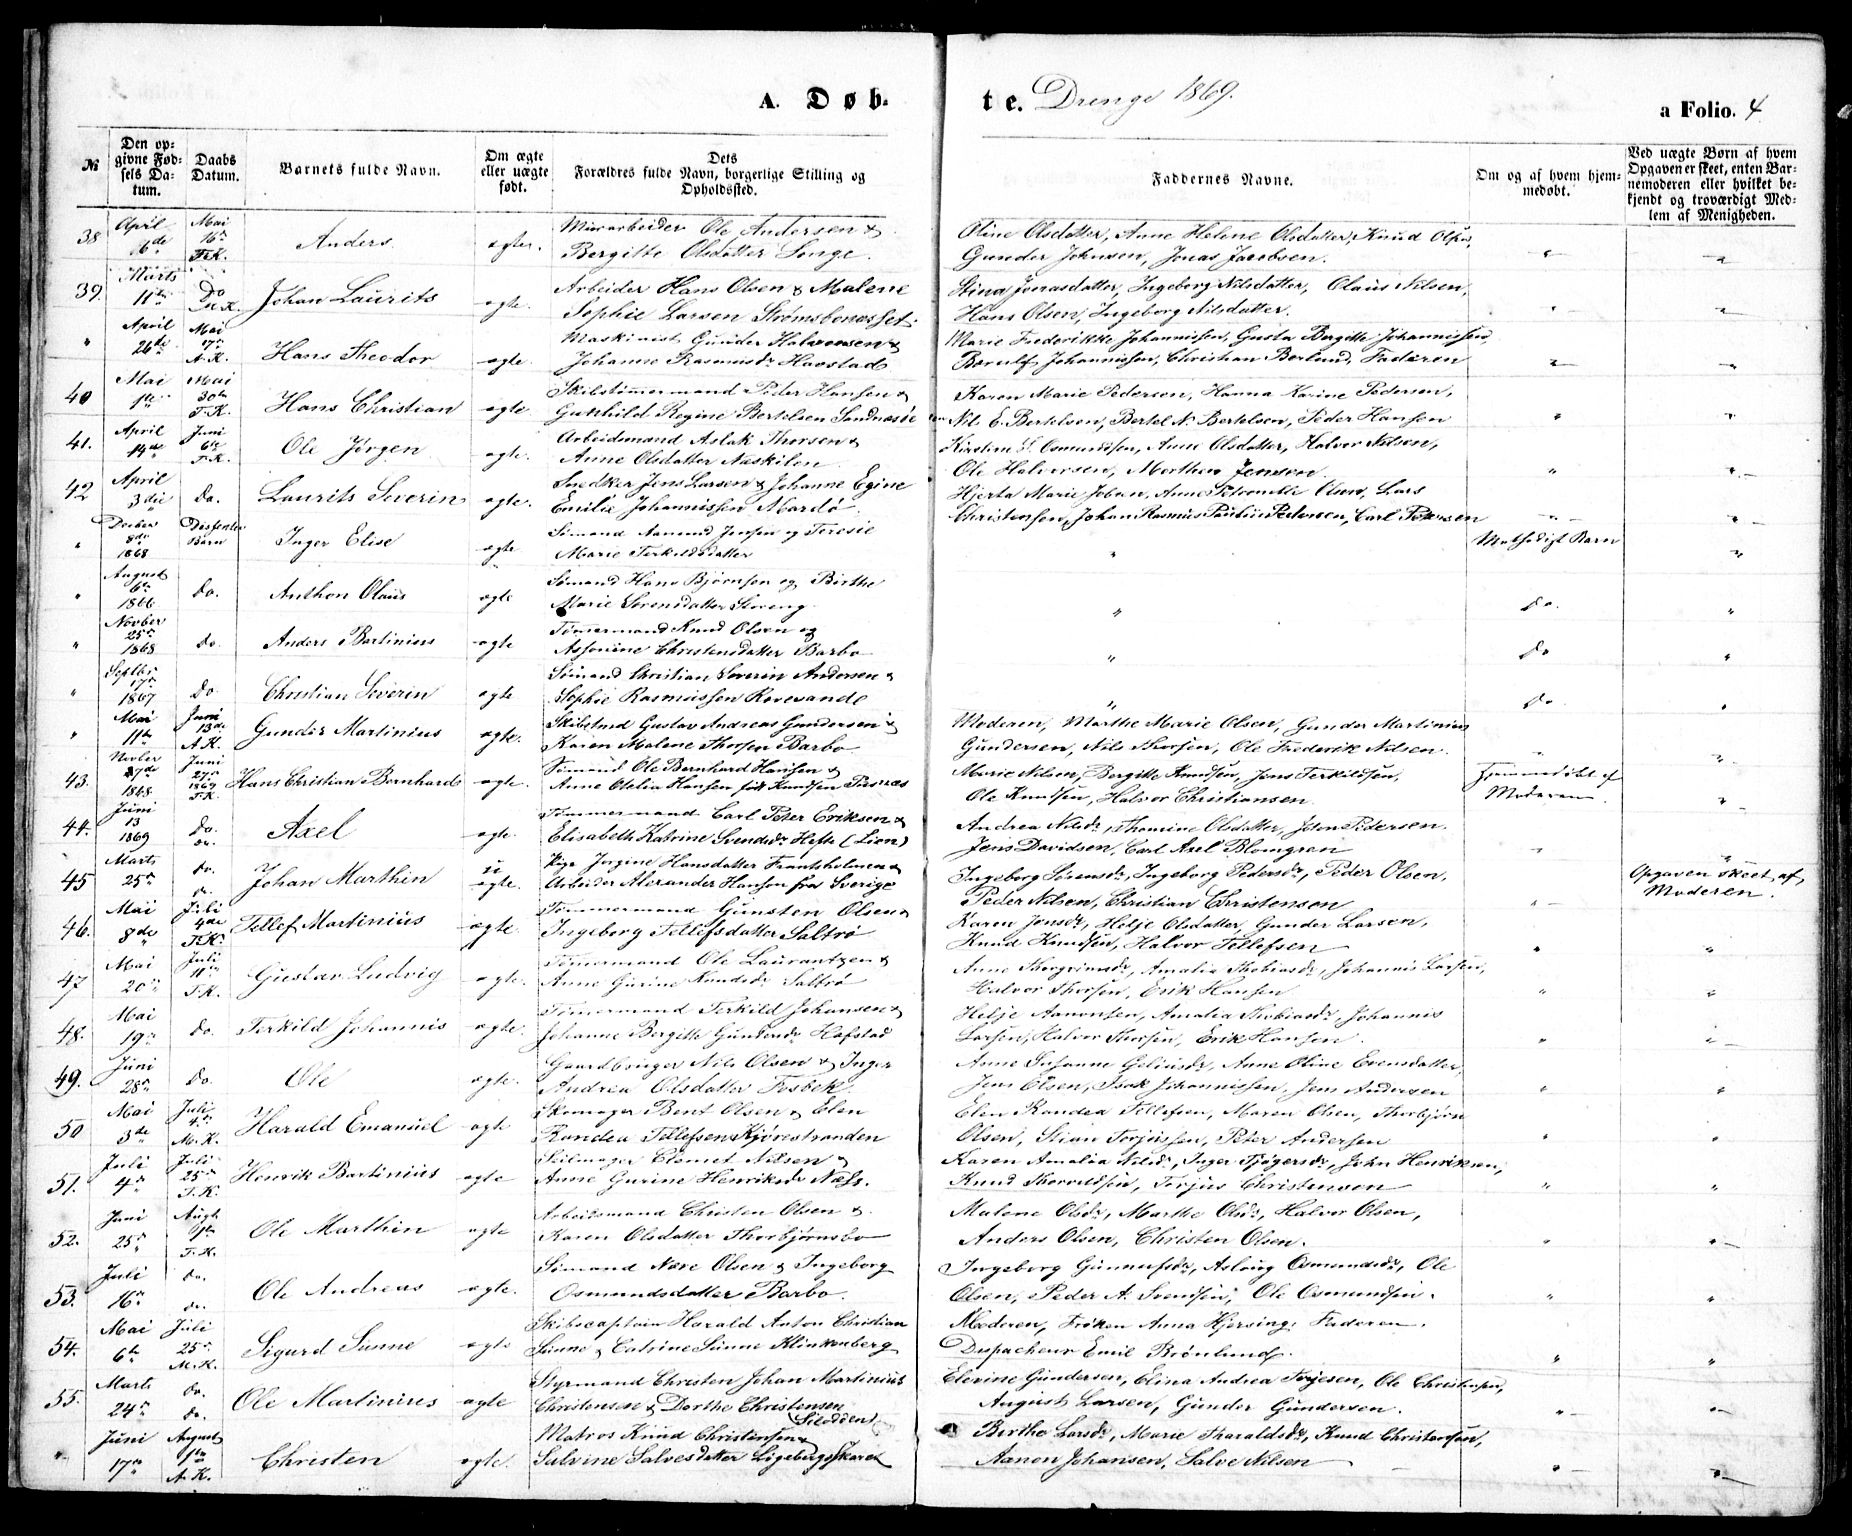 A. Døbte. Drenge 1869. a Folio. 4
№ | Den opgivne Fødsels Datum. | Daabs Datum. | Barnets fulde Navn. | Om ægte eller uægte født. | Dets Forældres fulde Navn, borgerlige Stilling og Opholdssted. | Faddernes Navne. | Om og af hvem hjemmedøbt. | Ved uægte Børn af hvem Opgaven er skeet, enten Barnemoderen eller hvilket bekjendt og troværdigt Medlem af Menigheden.
38 April 16de Mai 16de T.K. Anders ægte. Ole Andersen & Oline Olsdatter, Anne Helene Olsdatter, Knud Olsen,
Bergitte Olsdatter Songe. Gunder Johnsen, Jonas Jacobsen.
39. Marts 11te Do Johan Laurits ægte. Arbeider Hans Olsen & Malene Stina Jonasdatter, Ingeborg Nilsdatter, Olaus Nilsen,
Sophie Larsen Strømsbonesset. Hans Olsen, Ingeborg Nilsdatter.
" April 26de Mai 17de A.K. Hans Theodor ægte. Maskinist Gunder Halvorsen & Marie Frederikke Johannissen, Gusta Bergitte Johannissen
Johanne Rasmusdr Havstad Johannissen, Christian Berlund, Faderen
40 Mai 1te Mai 30te T.K. Hans Christian ægte. Skibstømmermand Peder Hansen & Karen Marie Pedersen, Hanna Karine Pedersen,
Gunhild Regine Bertelsen Sandnesøe Nils E. Bertelsen, Bertel N. Bertelsen, Peder Hansen
41. April 14de Juni 6te T.K. Ole Jørgen ægte. Arbeidsmand Aslak Thorsen & Kirstine Osmundsen, Anne Olsdatter, Halvor Nilsen,
Anne Olsdatter Næskilen Ole Halvorsen, Morthen Jensen
42 April 3die Do. Laurits Severin ægte. Snedker Jens Larsen & Johanne Egine Hjerta Marie Olsen, Lars
Emilie Johannissen Mardø. Christensen, Johan Rasmus Pedersen, Carl Petersen
" Decber 8de 1868 Dissenter Barn Inger Elise ægte. Sømand Aamund Jensen og Teresie Methodigt Barn
Marie Terkildsdatter
" August 6te 1866 do. Anthon Olaus ægte Sømand Hans Bjørnsen og Birthe Do.
Marie Sørensdatter Storeng.
" Novber 25de 1868 do. Anders Bertinius ægte Tømmermand Knud Olsen og Do
Christensdatter Barbo
" Septbr 17de 1867 Do Christian Severin ægte Sømand Christian Severin Andersen & Do
Sophie Rasmussen Revesande
" Mai 11te Juni 13de A.K. Gunder Martinius ægte. Gustav Andreas Gundersen & Moderen, Marthe Marie Olsen, Gunder Martinius
Karen Malene Thorsen Barbo Gundersen, Nils Thorsen, Ole Frederik Nilsen.
43. Novber 27de 1868 Juni 27de 1869 T.K. Hans Christian Bernhard ægte. Sømand Ole Bernhard Hansen & Marie Nilsen, Bergitte Knudsen, Jens Terkildsen, Hjemmedøbt af
Anne Otelia Hansen født Knudsen Pusnæs Ole Knudsen, Halvor Christiansen. Moderen.
44. Juni 13 1869 do. do. Axel ægte. Tømmermand Carl Peter Eriksen & Andrea Nilsdr, Thomine Olsdatter, John Pedersen.
Elisabeth Katrine Svendsdr Hefte (Lien) Jens Davidsen, Carl Axel Blomgren
45 Marts 25de do. do. Johan Marthin uægte. Pige Jngine Hansdatter Frantsholmen & Ingeborg Sørensdr, Ingeborg Pedersdr, Peder Olsen, Opgaven skeet af
Arbeider Alexander Hansen fra Sverige Peder Nilsen, Christian Christensen Moderen.
46. Mai 8de Juli 4de T.K. Tellef Martinius ægte. Tømmermand Gunsten Olsen & Karen Jensdr, Helje Olsdatter, Gunder Larsen,
Ingeborg Tellefsdatter Saltrø Knud Knudsen, Halvor Tellefsen
47 Mai 20de Juli 11te T.K. Gustav Ludvig ægte. Tømmermand Ole Laurantzen & Anne Thorgrimsdr, Amalia Thobiasdr, Johannis Larsen,
Anne Gurine Knudsdr Saltrø Halvor Thorsen, Erik Hansen
48. Mai 19de do. Terkild Johannis ægte. Tømmermand Terkild Johansen & Helje Aanonsen, Amalia Thobiasdr, Johannis
Johanne Bergitte Gundersdr Hafstad Larsen, Halvor Thorsen, Erik Hansen.
49. Juni 28de do. Ole ægte. Gaardbruger Nils Olsen & Inger Anne Susanne Geliusdr, Anne Oline Evensdatter,
Andrea Olsdatter Fosbek. Jens Olsen, Isak Johannissen, Jens Andersen
50 Mai 3de Juli 4de M.K. Harald Emanuel ægte Skomager Bent Olsen & Elen Elen Randea Tellefsen, Maren Olsen, Thorbjørn
Randea Tellefsen Kjørestranden Olsen, Stian Torjussen, Peter Andersen
51. Juli 4de Juli 25de T.K. Henrik Bertinius ægte Seilmager Clemet Nilsen & Karen Amalia Nilsdr, Inger Tjøgersdr, John Henriksen,
Anne Gurine Henriksdr Næss. Knud Thorvildsen, Torjus Christensen
52. Juni 25de Augt 1ste T.K. Ole Marthin ægte Arbeidsmand Christen Olsen & Malene Olsdr, Marthe Olsdr, Halvor Olsen,
Karen Olsdatter Thorbjørnsbo Anders Olsen, Christen Olsen.
53. Juli 16de do. do. Ole Andreas ægte. Sømand Nære Olsen & Ingeborg Ingeborg Gunnufsdr, Aslaug Osmundsdr, Ole
Osmundsdatter Barbo. Olsen, Peder A. Svendsen, Ole Osmundsen.
54. Mai 6te Juli 25de M.K. Sigurd Sunne ægte Skibscaptain Harald Anton Christian Moderen, Frøken Anna Hjersing, Faderen.
Sunne & Catrine Sunne Klinkenberg Dispacheur Emil Brønlund.
55. Marts 24de do. do. Ole Martinius ægte Styrmand Christen Johan Martinius Elevine Gundersen, Elina Andrea Torjesen, Ole Christensen,
Christensen & Dorthe Christensen (Silodden) August Larsen, Gunder Gundersen.
" Juni 17de August 1ste A.K. Christen ægte. Matros Knud Christensen & Birthe Larsdr, Marie Tharaldsdr, Knud Christensen,
Salvine Salvesdatter Ligebergsskaret Aanon Johansen, Salve Nilsen